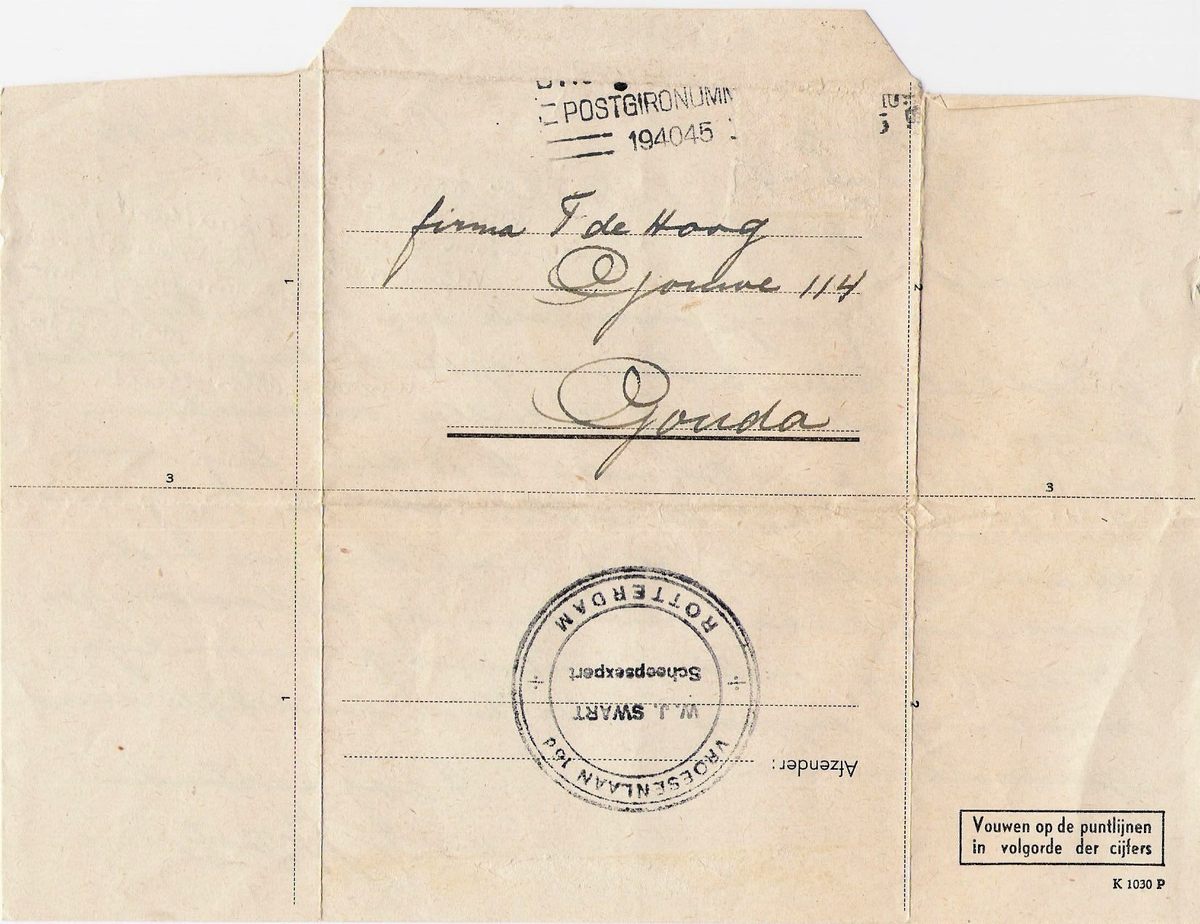 POSTGIRONUMM
194045
firma T de Hoog
Gouwe 114
Gouda
1
2
3
3
1
2
ROTTERDAM
Scheepsexpert
W.J. SWART
VROESENLAAN 16d
Afzender:
Vouwen op de puntlijnen
in volgorde der cijfers
K 1030 P